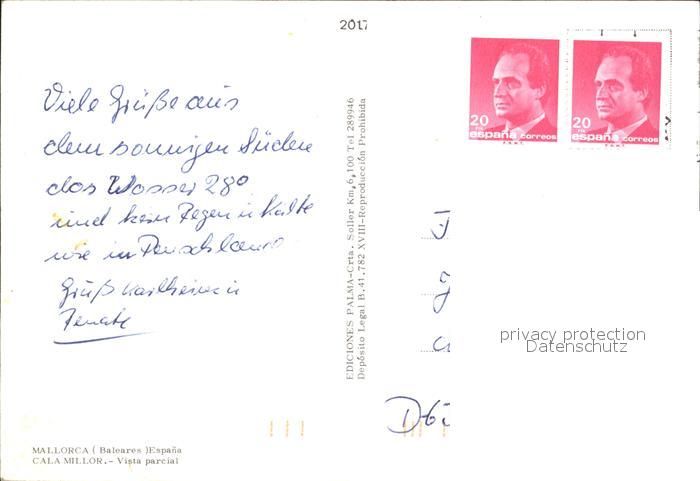 2017
Viele Grüße aus
dem sonnigen Süden
das Wasser 28°
und kein Regen u Kälte
wie in Deutschland
Gruß Karlheinz u
Renate
MALLORCA ( Baleares )España
CALA MILLOR.- Vista parcial
EDICIONES PALMA-Crta. Soller Km,6,100 Tel 289946
Depósito Legal B.41.782 XVIII-Reproducción Prohibida
20
PTA
españa correos
F.N.M.T.
20
PTA
españa correos
F.N.M.T.
privacy protection
Datenschutz
D-6